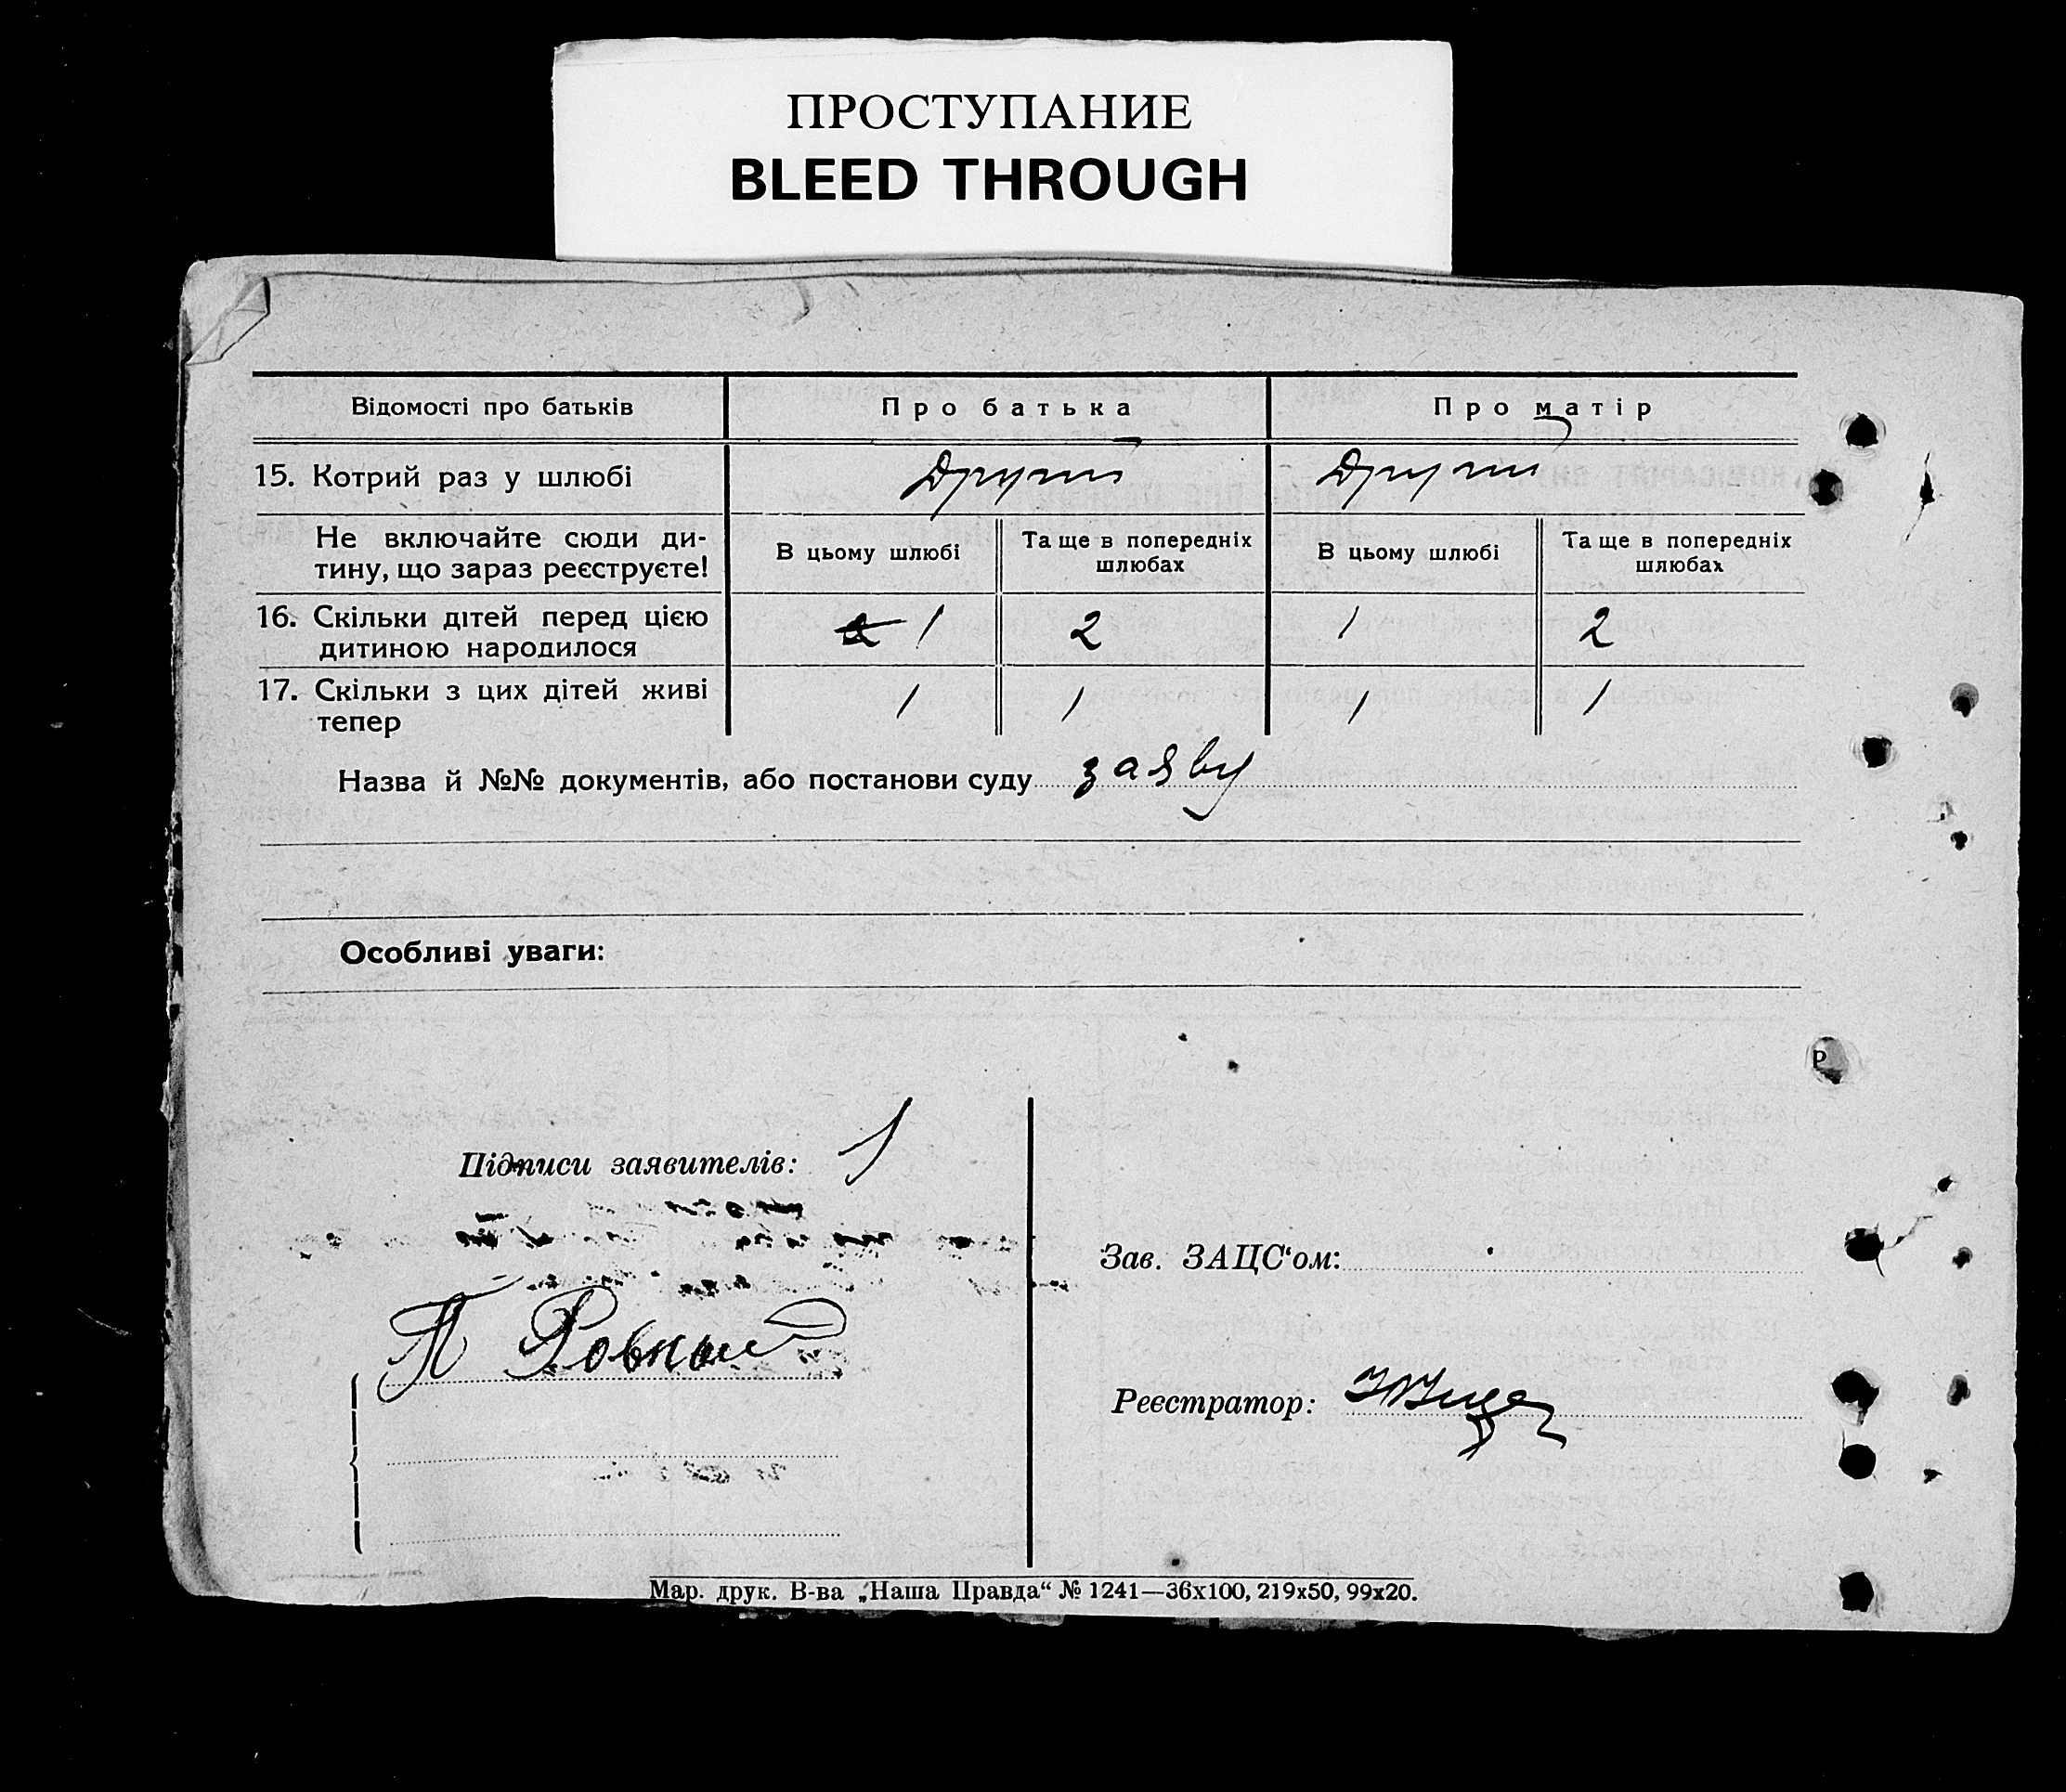 ПРОСТУПАНИЕ
BLEED THROUGH
Відомості про батьків Про батька Про матір
15. Котрий раз у шлюбі Другий Другий
Не включайте сюди ди-
тину, що зараз реєструєте! В цьому шлюбі Та ще в попередніх шлюбах В цьому шлюбі Та ще в попередніх шлюбах
16. Скільки дітей перед цією
дитиною народилося 1 2 1 2
17. Скільки з цих дітей живі
тепер 1 1 1 1
Назва й №№ документів, або постанови суду заяву
Особливі уваги:
Підписи заявителів:
Зав. ЗАЦС'ом:
Реєстратор:
Мар. друк. В-ва „Наша Правда“ № 1241—36х100, 219х50, 99х20.